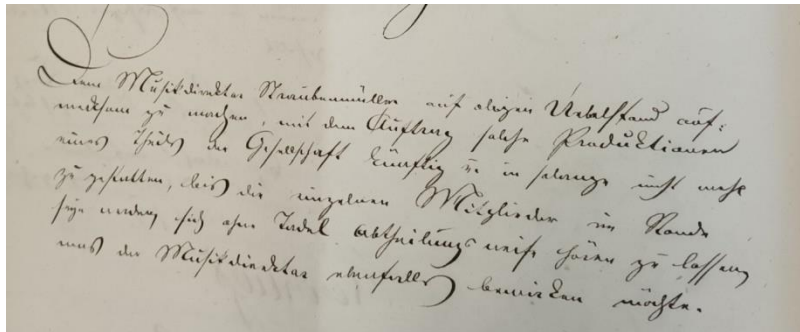 Dem Musikdirektor Straubenmüller auf obigen Uebelstand auf=
merksam zu machen, mit dem Auftrag solche Produktionen
eines Theils der Gesellschaft künftig in solange nicht mehr
zu gestatten, bis die einzelnen Mitglieder im Stande
seyn werden, sich ohne Tadel abtheilungsweise hören zu lassen,
was der Musikdirektor ebenfalls bewirken möchte.